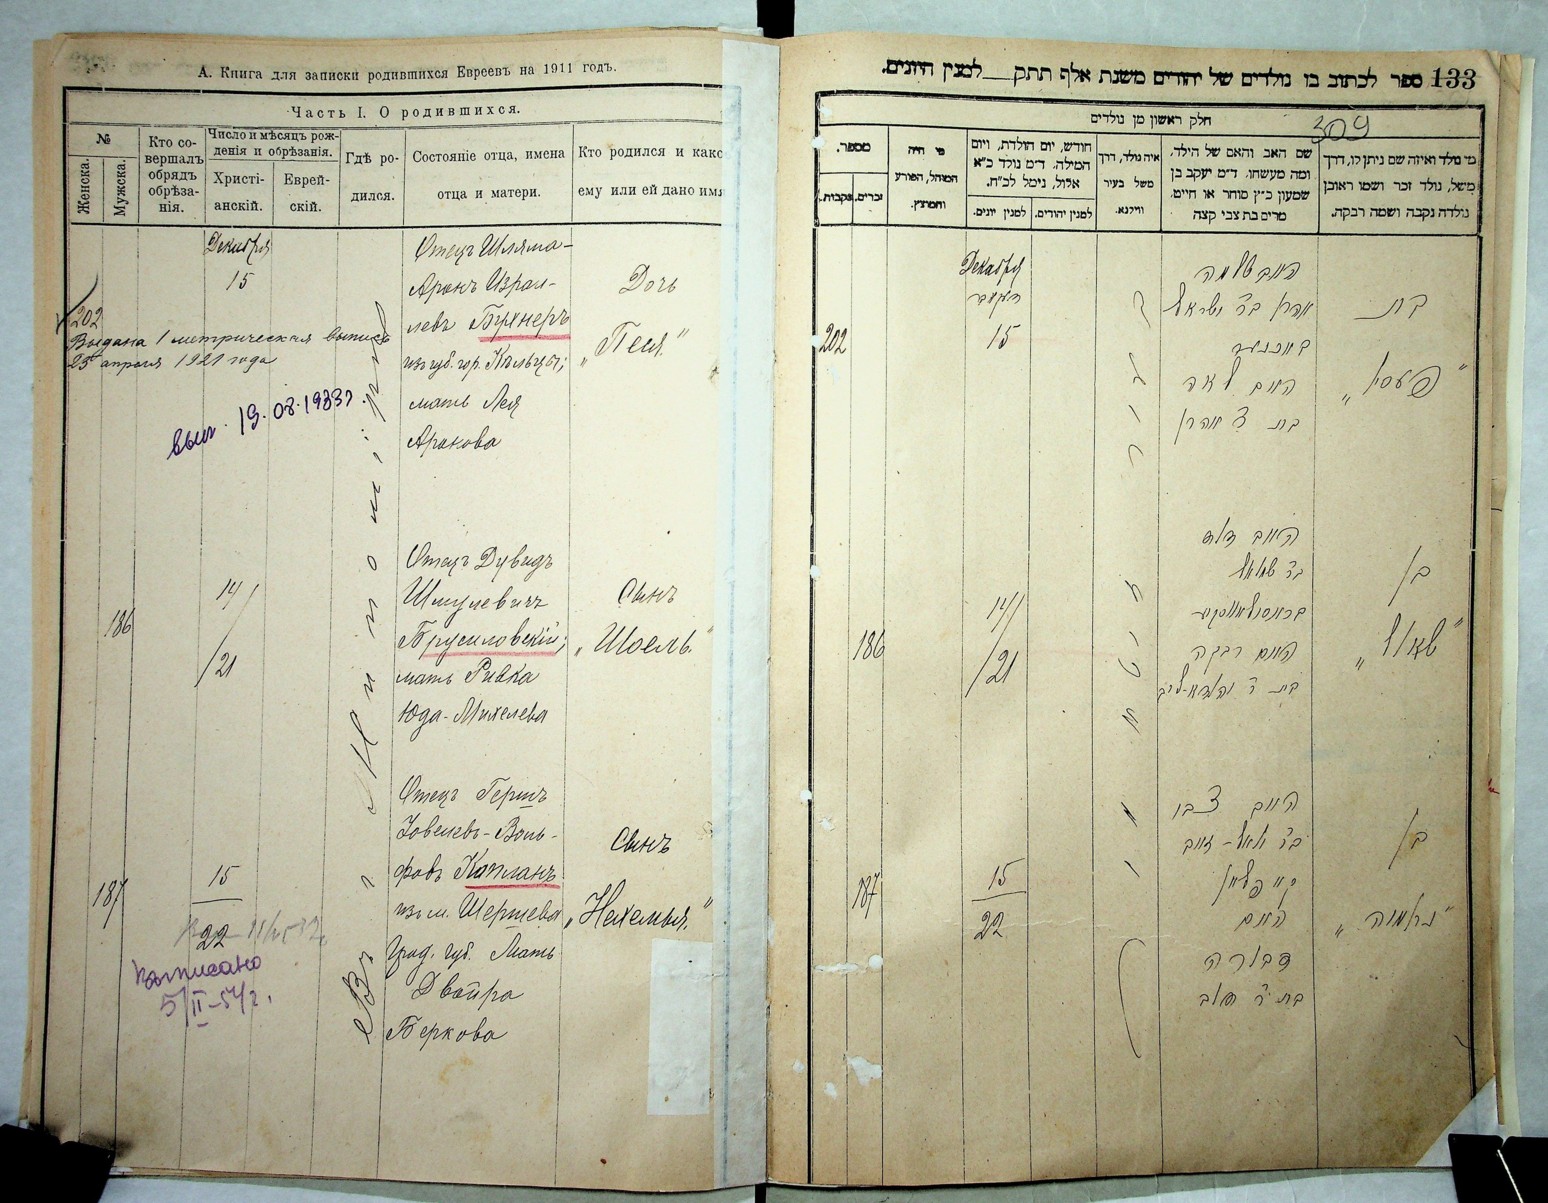 А. Книга для записки родившихся Евреевъ на 1911 годъ.
Часть I. О родившихся.
№
Женска.
Мужска.
Кто со-
вершалъ
обрядъ
обрѣза-
нія.
Число и мѣсяцъ рож-
денія и обрѣзанія.
Христі-
анскій.
Еврей-
скій.
Гдѣ ро-
дился.
Состояніе отца, имена
отца и матери.
Кто родился и како
ему или ей дано имя
Декабря
15
202
Выдана 1 метрическая выпись
25 апреля 1921 года
Отецъ Шлема-
Аронъ Израи-
левъ Бухнеръ
изъ губ. гор. Кѣльцы;
мать Лея
Аронова
Дочь
„Песя."
14/
/21
186
Отецъ Дувидъ
Шмулевичъ
Брусиловскій;
мать Ривка
Юда-Михелева
Сынъ
„Шоель."
187
15
22
записано
5/II-54 г.
Отецъ Гершъ
Іовелевъ-Воль-
фовъ Капланъ
изъ м. Шершева
Град. губ. Мать
Двойра
Беркова
Сынъ
„Нехемья."
Въ г.
ספר לכתוב בו נולדים של יהודים משנת אלף תתק למנין היונים.
133
309
חלק ראשון מן נולדים
מספר.
נקבות.
זכרים.
מי היה
המוהל, הפורע
והמוצץ.
חודש, יום הולדת, ויום
המילה. ד"מ נולד כ"א
אלול, נימל לכ"ח.
למנין יונים.
למנין יהודים.
איה נולד, דרך
משל בעיר
ווילנא.
שם האב והאם של הילד,
ומה מעשהו. ד"מ יעקב בן
שמעון כ"ץ סוחר או חיים.
מרים בת צבי קצה
מי נולד ואיזה שם ניתן לו, דרך
משל, נולד זכר ושמו ראובן
נולדה נקבה ושמה רבקה.
202
Декабря
דעקאבר
15
האב שלמה
אהרן בר ישראל
האם לאה
בת ר אהרן
בת
„פעסי"
186
14/
/21
האב דוד
בר שמואל
האם רבקה
בן
„שאול"
187
15
22
האב צבי
קאפלאן
האם
דבורה
בת ר' דוב
בן
„נחמיה"